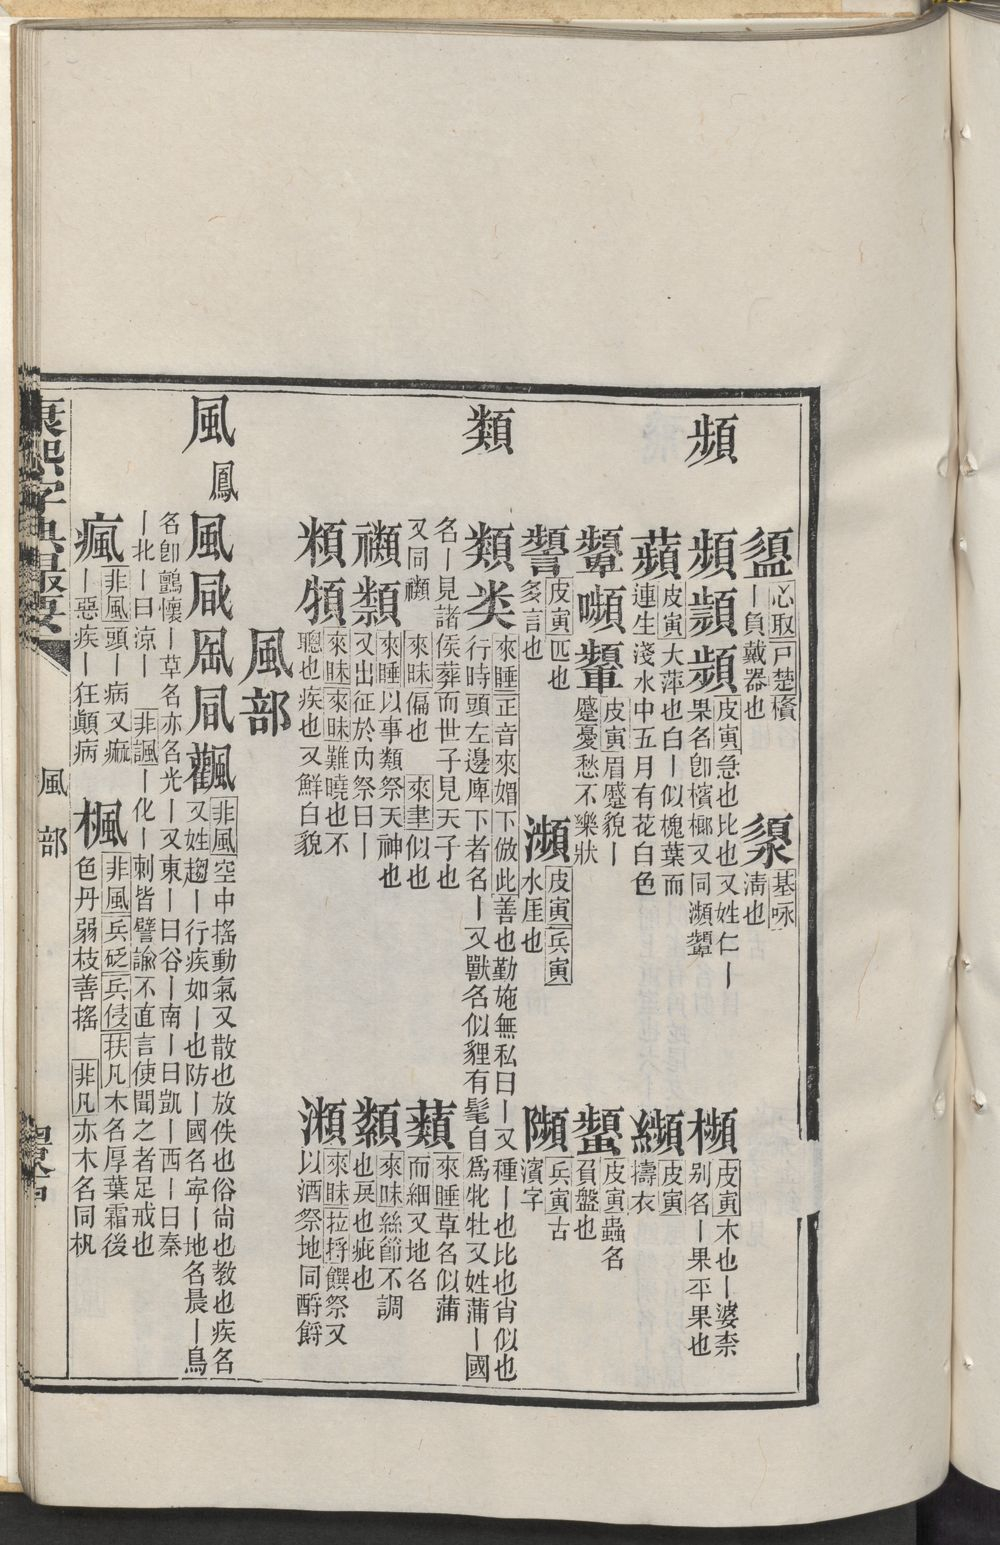 盨 心取 戸楚㰅
丨負戴器也
湏 基咏
淸也
頻
頻 顮 頻 皮寅 急也比也又姓仁丨
果名卽檳榔又同瀕顰
櫇 皮寅 木也丨婆柰
别名丨果平果也
蘋 皮寅 大萍也白丨似槐葉而
連生淺水中五月有花白色
纐 皮寅
擣衣
顰 嚬 顰 皮寅 眉蹙貌丨
蹙憂愁不樂狀
蠙 皮寅 蟲名
負盤也
皮寅 匹也
多言也
瀕 皮寅 兵寅
水厓也
兵寅 古
濱字
類
類 类 來睡 正音來媚下倣此 善也勤施無私曰丨又種丨也比也肖似也
行時頭左邊庳下者名丨又獸名似貍有髦自爲牝牡又姓蒲丨國
名丨見諸侯葬而世子見天子也
又同禷 來昧 偏也 來聿 似也
蘱 來睡 草名似蒲
而細又地名
禷 䫶 來睡 以事類祭天神也
又出征於內祭曰丨
纇 來味 絲節不調
也戾也疵也
頪 領 來昧 來昧 難曉也不
聰也疾也又鮮白貌
瀨 來昧 拉捋 饌祭又
以酒祭地同酹䤥
風部
風 鳳
風 凬 凮 凨 飌 非風 空中搖動氣又散也放佚也俗尙也敎也疾名
又姓趨丨行疾如丨也防丨國名寍丨地名晨丨鳥
名卽鸇懷丨草名亦名光丨又東丨曰谷丨南丨曰凱丨西丨曰秦
丨北丨曰涼丨 非諷 丨化丨刺皆譬諭不直言使聞之者足戒也
瘋 非風 頭丨病又痲
丨惡疾丨狂顚病
楓 非風 兵砭 兵侵 扶凡 木名厚葉霜後
色丹弱枝善搖 非凡 亦木名同杋
康熙字典最要
風部